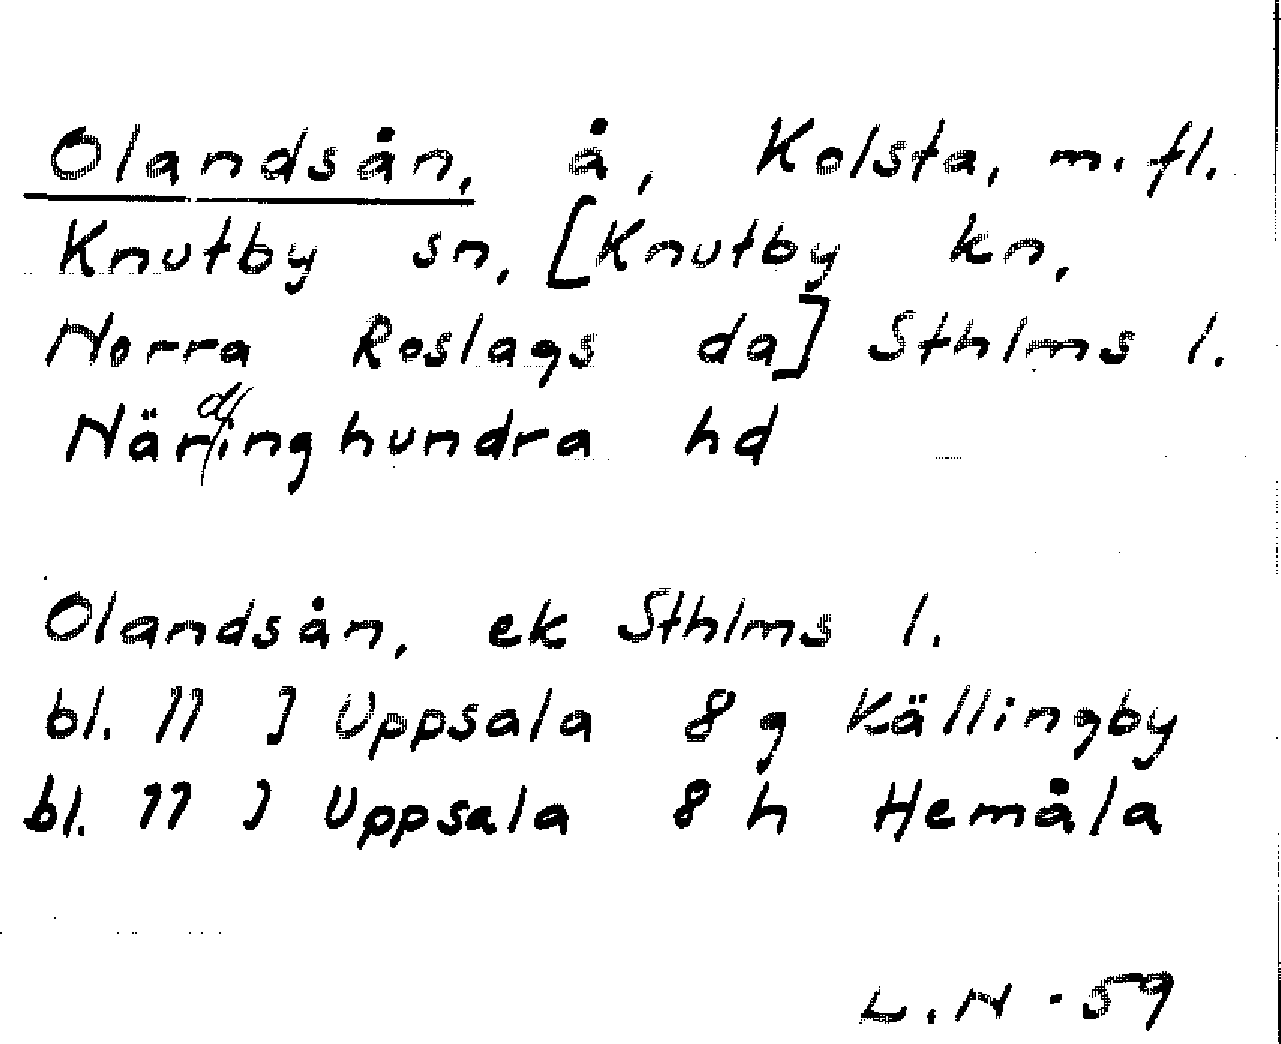 Olandsån, å, Kolsta, m.fl.
Knutby sn, [Knutby kn,
Norra Roslags da] Sthlms l.
Närdinghundra hd
Olandsån, ek Sthlms l.
bl. 11 J Uppsala 8 g Källingby
bl. 11 J Uppsala 8 h Hemåla
L.N -59